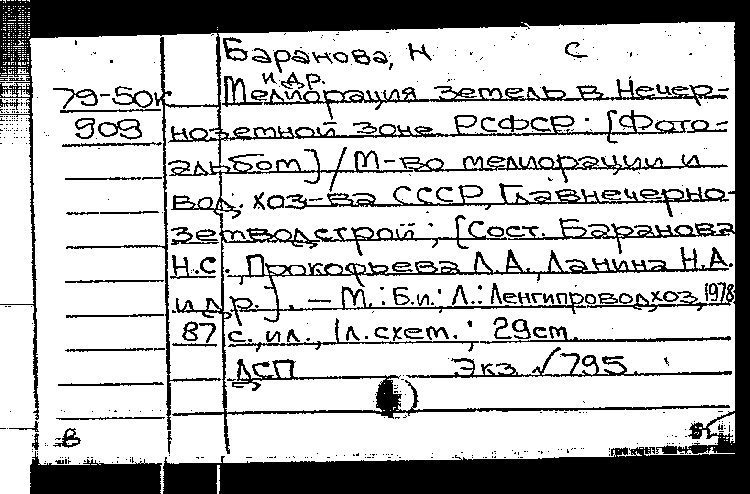 Баранова, Н С
и др.
79-50к Мелиорация земель в Нечер-
909 ноземной зоне РСФСР. [Фото-
альбом] / М-во мелиорации и
вод. хоз-ва СССР, Главнечерно-
земводстрой; [Сост. Баранова
Н.С., Прокофьева Л.А., Ланина Н.А.
и др.]. — М.: Б.и.; Л.: Ленгипроводхоз, 1978
87 с., ил., 1л. схем.; 29см.
ДСП Экз √795.
в